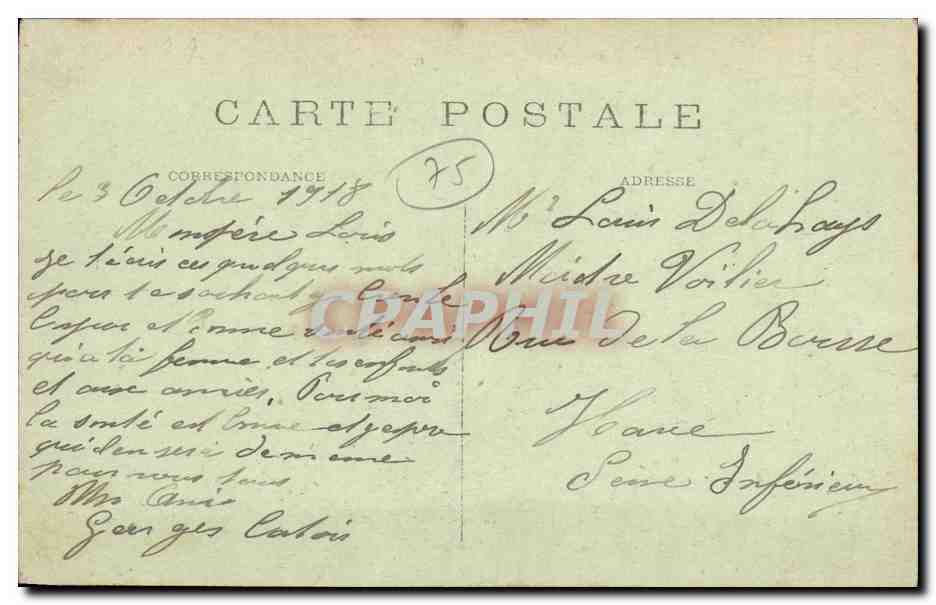 CARTE POSTALE
CORRESPONDANCE
75
ADRESSE
le 3 Octobre 1918
Mon père Louis
je t'écris ces quelques mots
pour te souhaité bonne
santé aussi
qu'a ta femme et tes enfants
et aux amies, Pour moi
la santé est bonne et j'espère
qu'il en sera de même
pour vous tous
Mr Louis Delahays
Maitre Voilier
Rue de la Bourse
Havre
Seine Inférieure
Georges
CPAPHIL